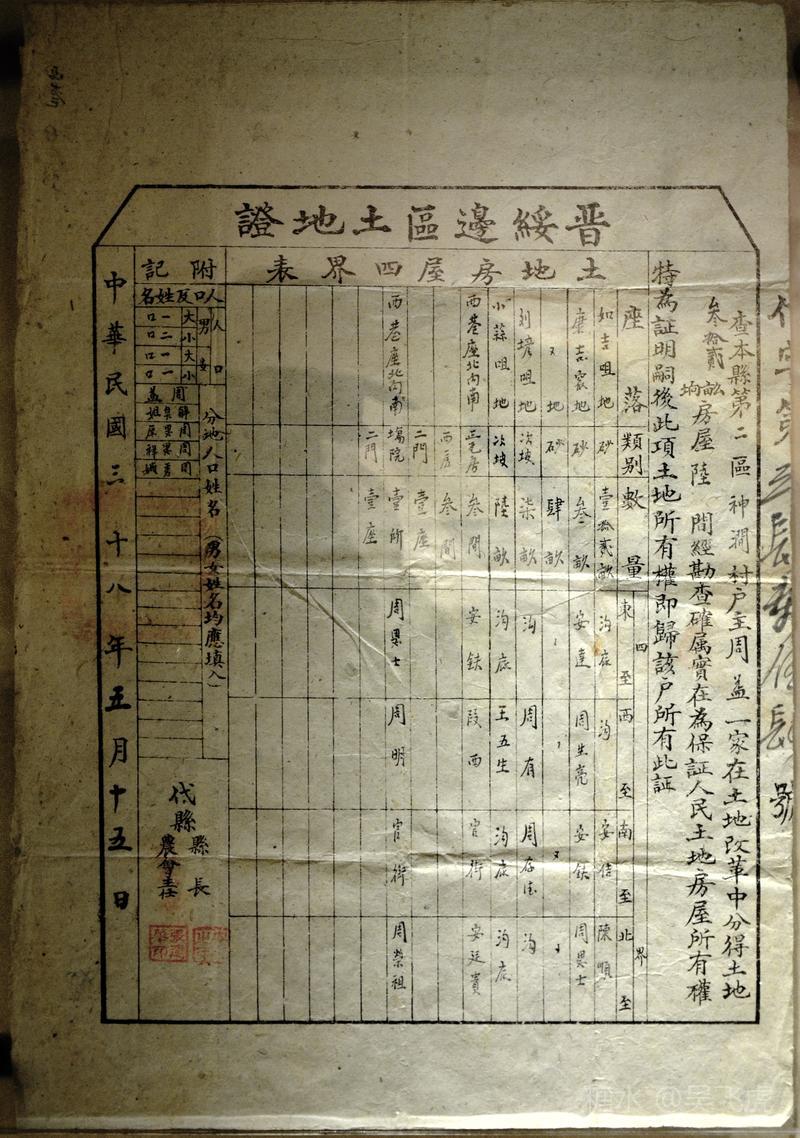 晋綏邊區土地證
查本縣第二區神澗村户主周盖一家在土地改革中分得土地
叁拾貳畝房屋陸間經勘查確属實在為保証人民土地房屋所有權
均
特為証明嗣後此項土地所有權即歸該户所有此証
號
土地房屋四界表
座落 類别 數量 四界 東至 西至 南至 北至
如吉咀地 砂 壹拾貳畝 沟底 沟 安佳 陳順
康吉窑地 砂 叁畝 安連 周生亮 安鉄 周思士
〃地 砂 肆畝
刘塔咀地 次坡 柒畝 沟 周有 周存德 沟
小蒜咀地 次坡 陸畝 沟底 王五生 沟底 沟底
西巷座北向南 正毛房 叁間 安鉄 段西 官街 安廷貴
西房 叁間
二門 壹座
西巷座北向南 塲院 壹所 周思士 周明 官街 周榮祖
二門 壹座
附記
人口及姓名
人口 男 大 一口
小 二口
女 大 一口
小 一口
分地人口姓名（男女姓名均應填入）
周盖
代縣縣長
農會主任
中華民國三十八年五月十五日
糖水 @吴飞虎